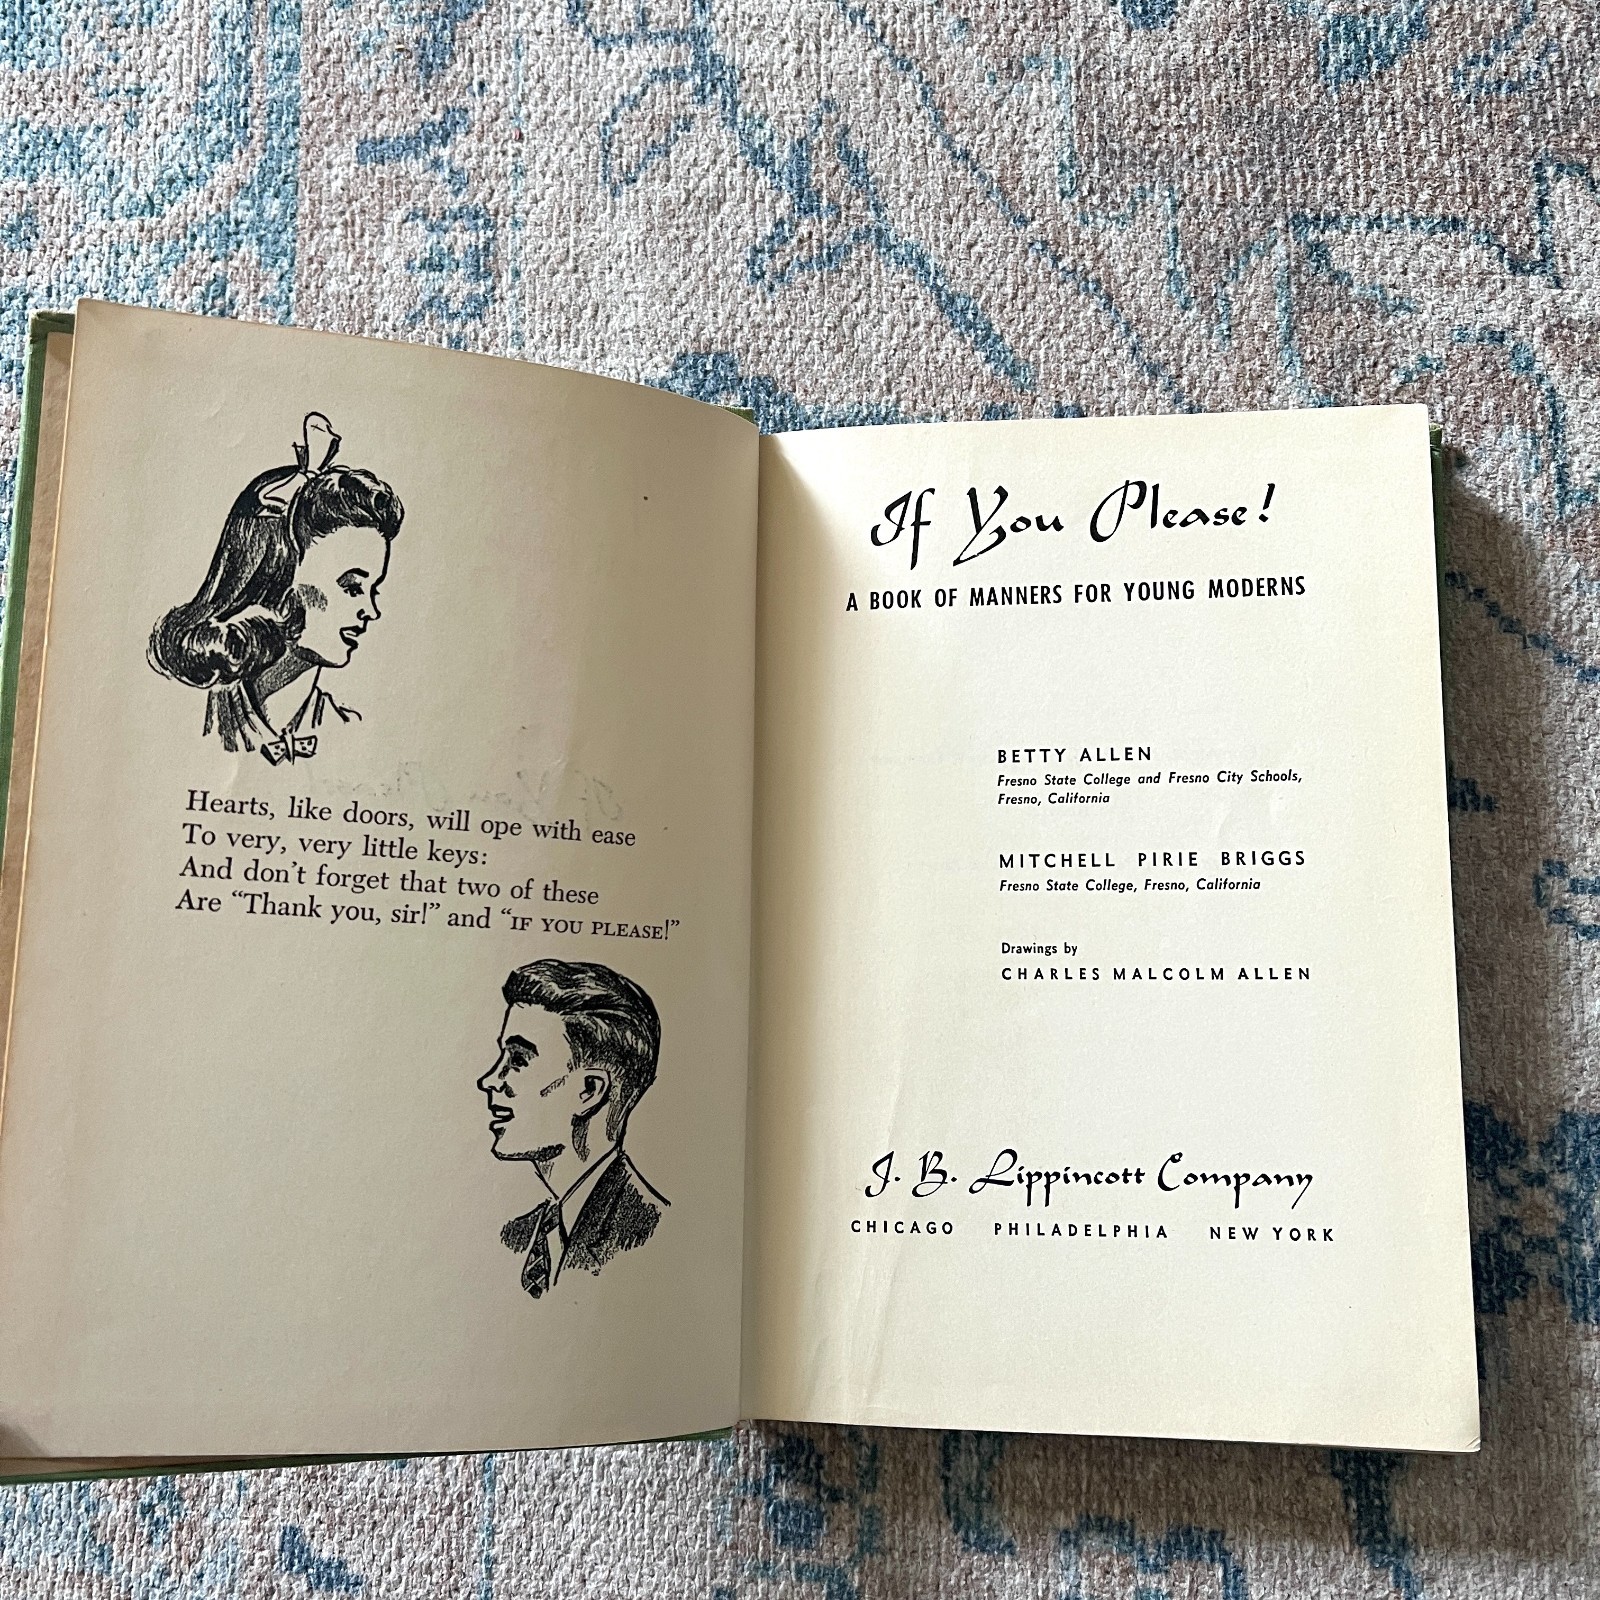 Hearts, like doors, will ope with ease
To very, very little keys:
And don't forget that two of these
Are “Thank you, sir!” and “IF YOU PLEASE!”
If You Please!
A BOOK OF MANNERS FOR YOUNG MODERNS
BETTY ALLEN
Fresno State College and Fresno City Schools,
Fresno, California
MITCHELL PIRIE BRIGGS
Fresno State College, Fresno, California
Drawings by
CHARLES MALCOLM ALLEN
J. B. Lippincott Company
CHICAGO PHILADELPHIA NEW YORK